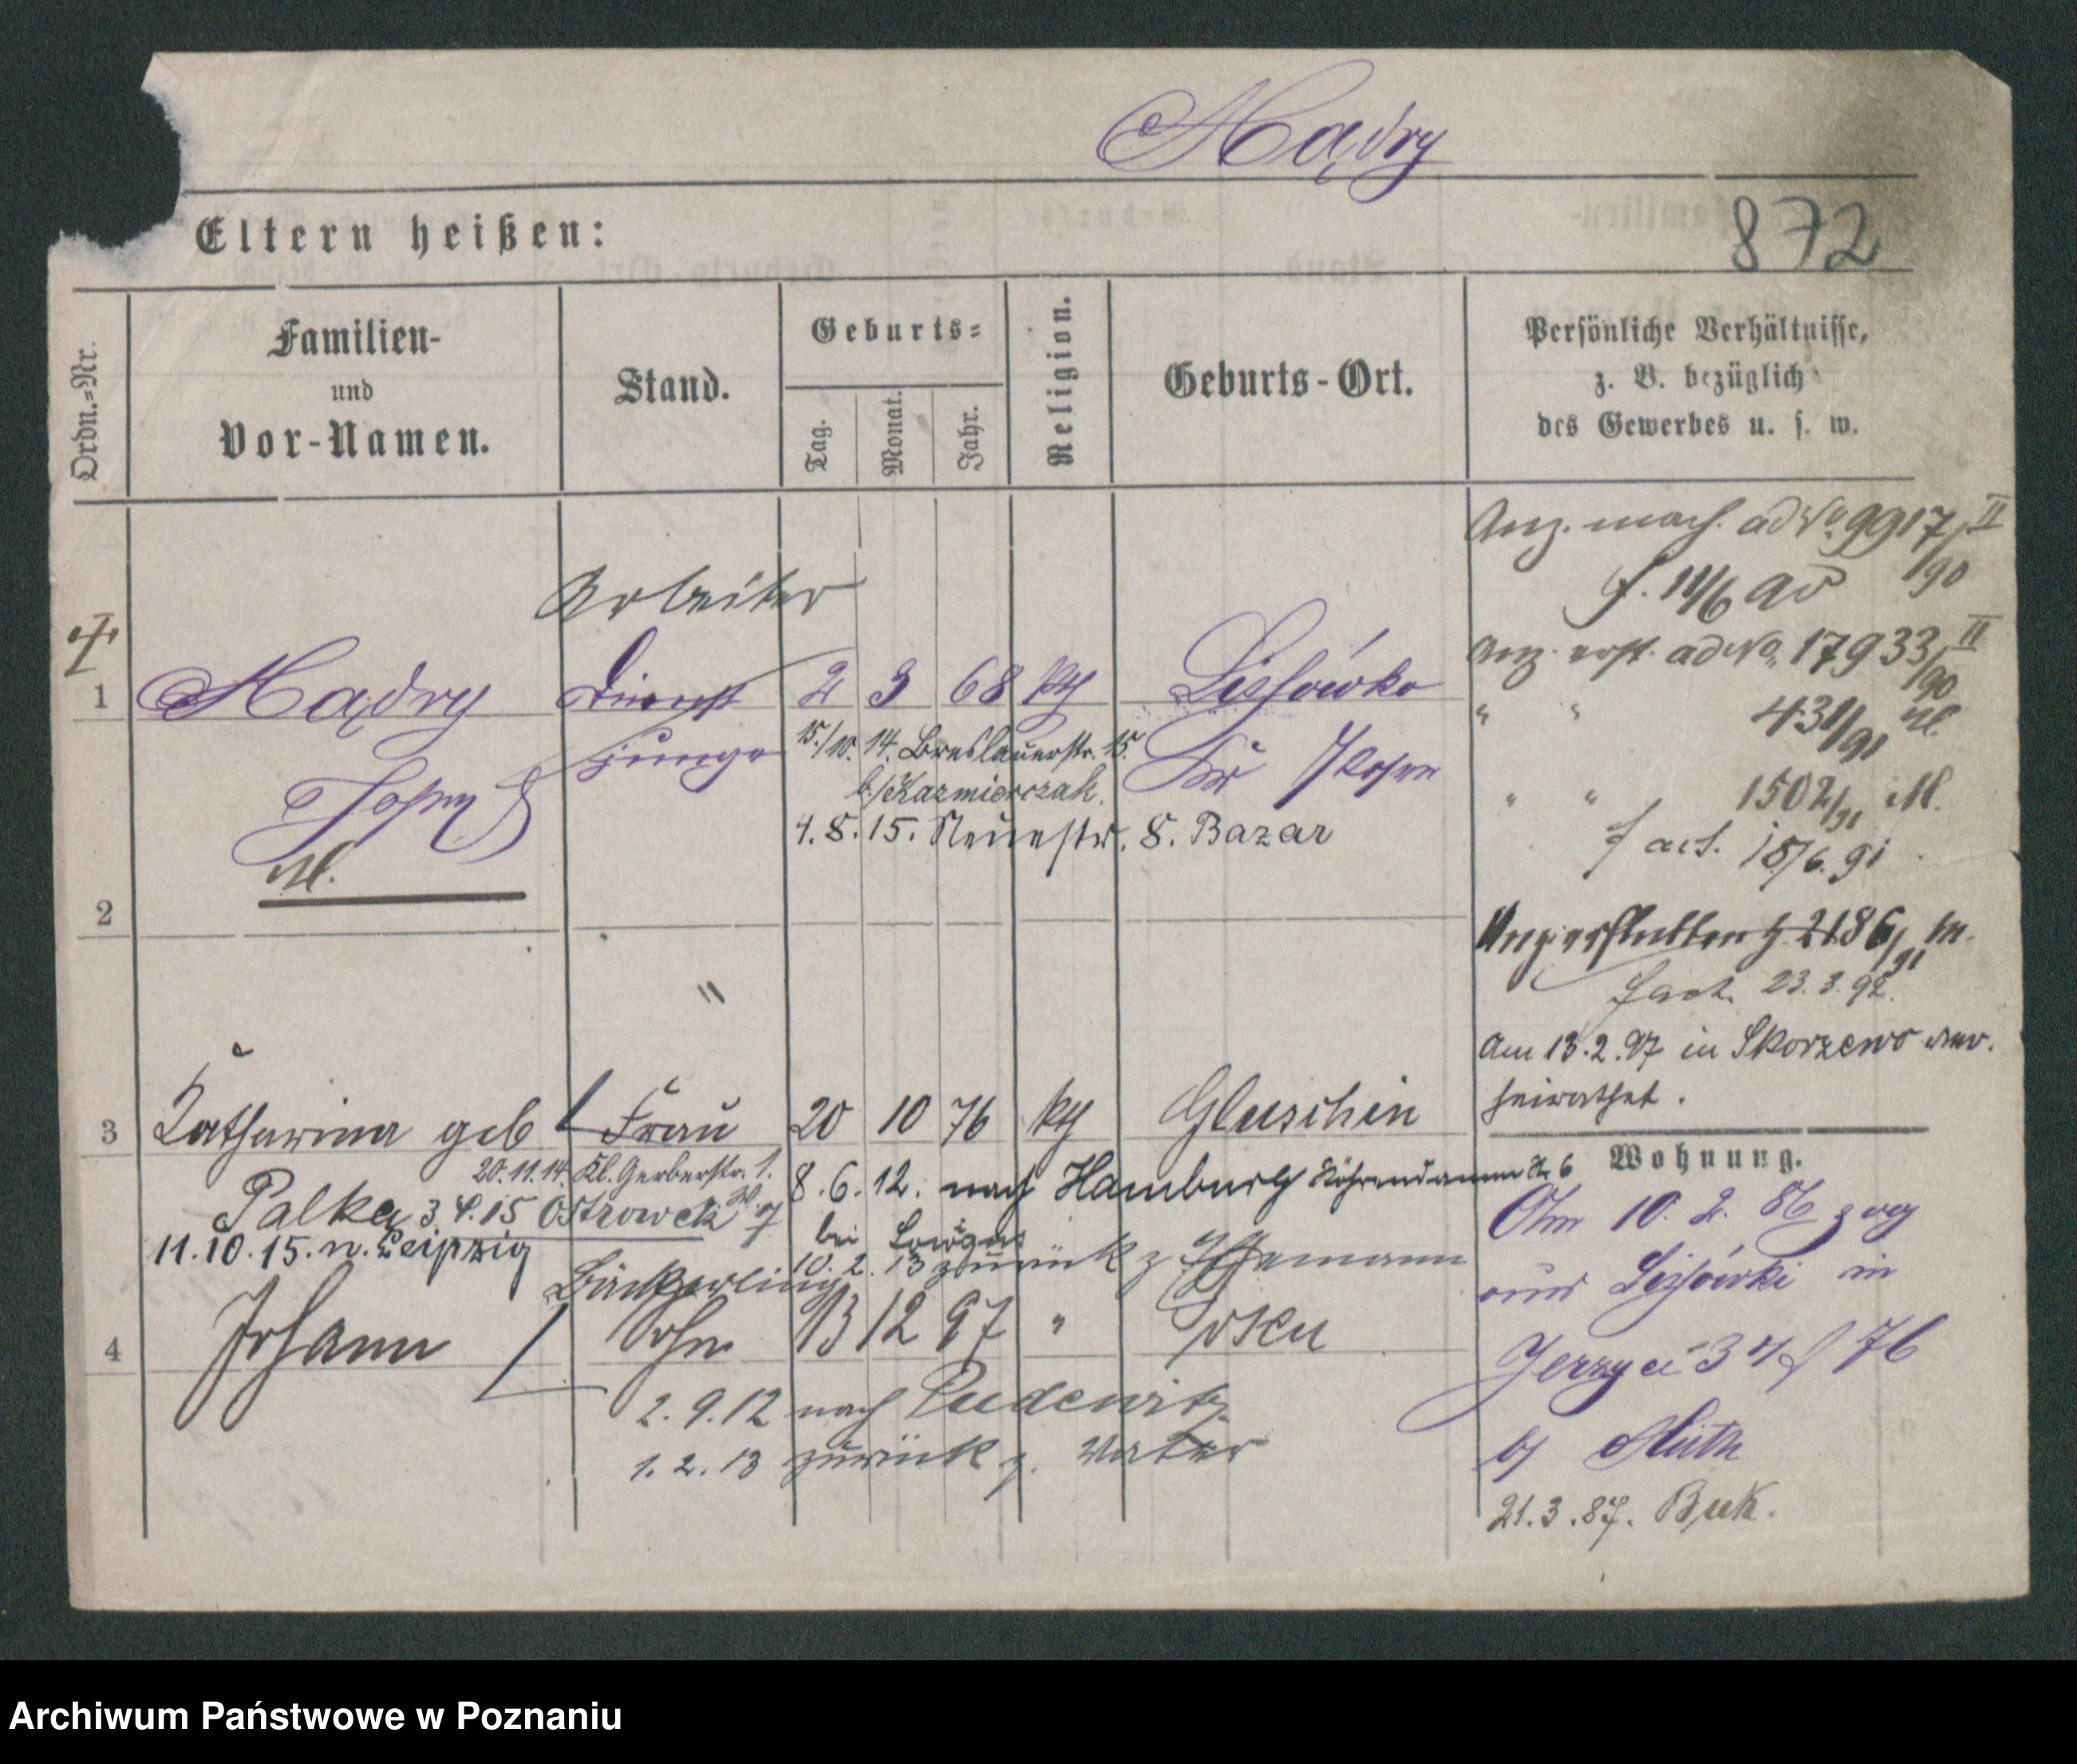 Mądry
Eltern heißen:
872
Ordn.-Nr.
Familien-
und
Vor-Namen.
Stand.
Geburts-
Tag.
Monat.
Jahr.
Religion.
Geburts-Ort.
Persönliche Verhältnisse,
z. B. bezüglich
des Gewerbes u. s. w.
Anz. mach. ad No. 9917/90 II
Arbeiter
Anz. erst. ad No. 17933/90 II
1 Mądry Dienst 2 3 68 kth
junge
" " 431/91 M.
15./10. 14. Breslauerstr. 15.
b./Kazmierczak.
Kr Posen
" " 1502/91 M.
4.8.15. Neuestr. 8. Bazar
f act. 18/6. 91
M.
2
2186/91 M.
f act. 23.3.92.
"
Am 13.2.97 in Skorzewo ver-
heirathet.
3 Katharina geb Frau 20 10 76 kth Gluschin
Wohnung.
20.11.14. Kl. Gerberstr. 1.
8.6.12. nach Hamburg
Palka 3.4.15 Ostrowek
bei
11.10.15. n. Leipzig
10.2.13 zurück z Ehemann
Am 10. 2. 86 zog
aus in
4 Johann Sohn 13 12 97 " Posen
Jerzyce 76
2.9.12 nach Pudewitz
1.2.13 zurück z. Vater
b/ Muth
21.3.87. Buk.
Archiwum Państwowe w Poznaniu